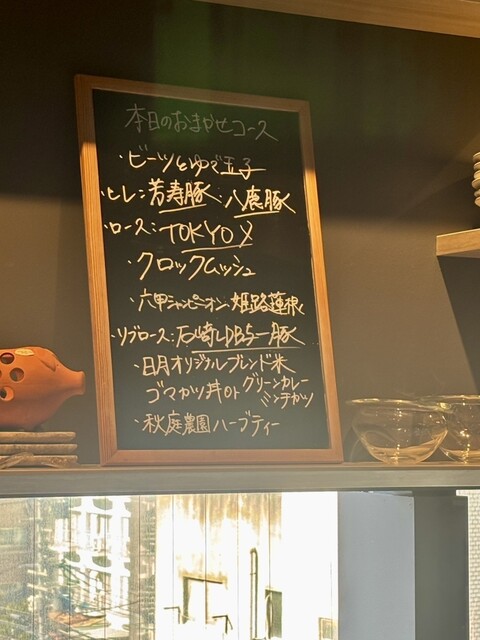 本日のおまかせコース
・ビーツとゆで玉子
・ヒレ:芳寿豚:八鹿豚
・ロース:TOKYO X
・クロックムッシュ
・六甲シャンピニオン:姫路蓮根
・リブロース:石崎LDB5一豚
・日月オリジナルブレンド米
ゴマカツ丼 or グリーンカレー
ミンチカツ
・秋庭農園ハーブティー